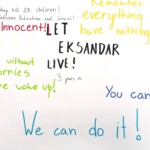 Remember
everything
have nothing
28 children!
between Palestine and Israel!
Innocent!
LET
EKSANDAR
LIVE!
without
worries
we wake up!
3 years
You can
We can do it!